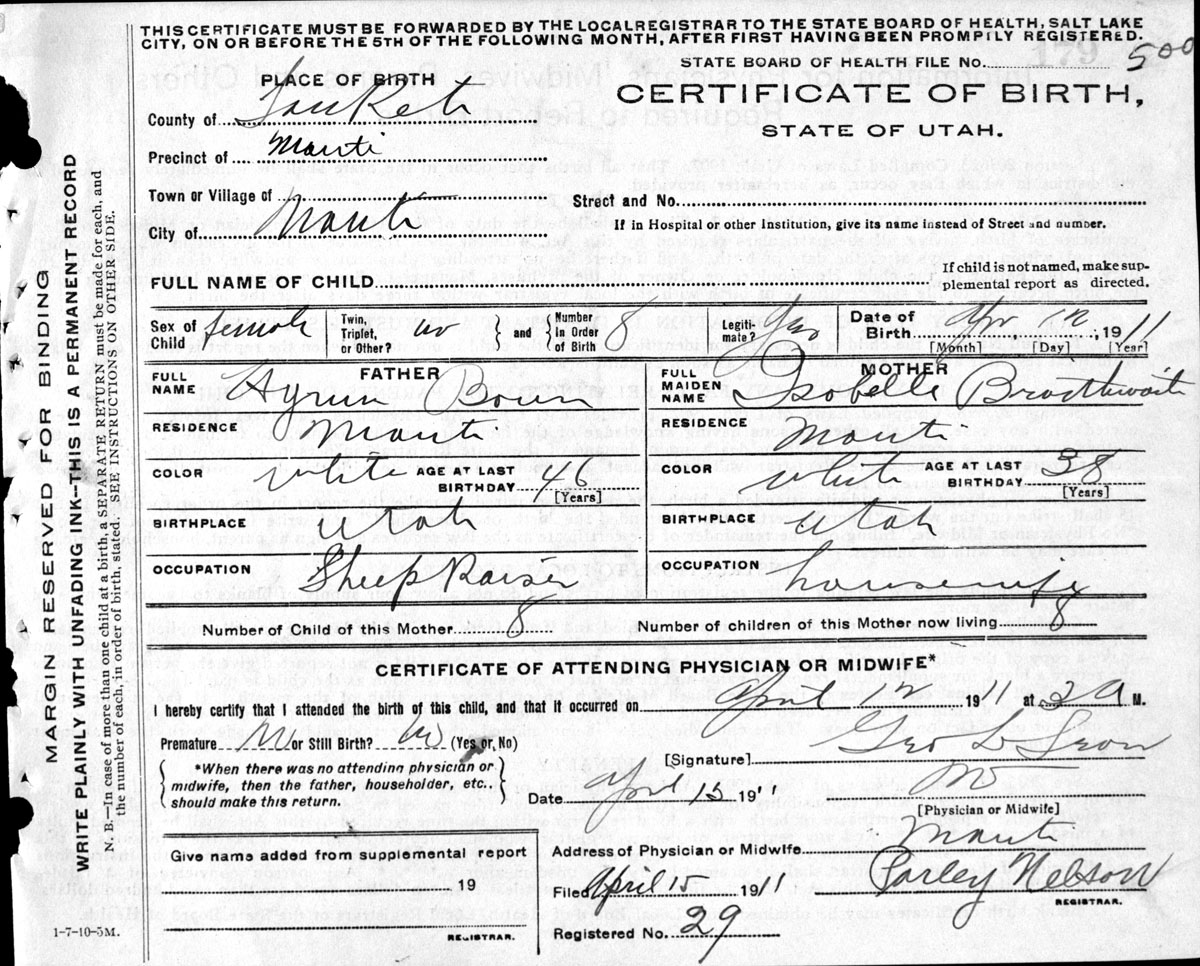 THIS CERTIFICATE MUST BE FORWARDED BY THE LOCAL REGISTRAR TO THE STATE BOARD OF HEALTH, SALT LAKE
CITY, ON OR BEFORE THE 5TH OF THE FOLLOWING MONTH, AFTER FIRST HAVING BEEN PROMPILY REGISTERED.
STATE BOARD OF HEALTH FILE No. 500
179
PLACE OF BIRTH
CERTIFICATE OF BIRTH,
STATE OF UTAH.
County of SanPete
Precinct of Manti
Town or Village of
Street and No.
City of Manti
If in Hospital or other Institution, give its name instead of Street and number.
FULL NAME OF CHILD
If child is not named, make sup-
plemental report as directed.
Sex of Child female Twin, Triplet, or Other? no and Number in Order of Birth 8 Legiti- mate? Yes Date of Birth Apr 12, 1911
[Month] [Day] [Year]
FATHER MOTHER
FULL NAME Hyrum FULL MAIDEN NAME Isobelle Bradthwait
RESIDENCE Manti RESIDENCE Manti
COLOR white AGE AT LAST BIRTHDAY 46 [Years] COLOR white AGE AT LAST BIRTHDAY 38 [Years]
BIRTHPLACE Utah BIRTHPLACE Utah
OCCUPATION Sheep Raiser OCCUPATION housewife
Number of Child of this Mother 8 Number of children of this Mother now living 8
CERTIFICATE OF ATTENDING PHYSICIAN OR MIDWIFE*
I hereby certify that I attended the birth of this child, and that it occurred on April 12 1911 at 2 a M.
Premature No or Still Birth? No (Yes or No)
Geo L
[Signature]
*When there was no attending physician or
midwife, then the father, householder, etc.,
should make this return.
Date April 15 1911
[Physician or Midwife]
Give name added from supplemental report
Address of Physician or Midwife Manti
19
Filed April 15 1911 Parley Nelson
REGISTRAR.
Registered No. 29
REGISTRAR.
1-7-10-5M.
MARGIN RESERVED FOR BINDING
WRITE PLAINLY WITH UNFADING INK—THIS IS A PERMANENT RECORD
N. B.—In case of more than one child at a birth, a SEPARATE RETURN must be made for each, and
the number of each, in order of birth, stated. SEE INSTRUCTIONS ON OTHER SIDE.